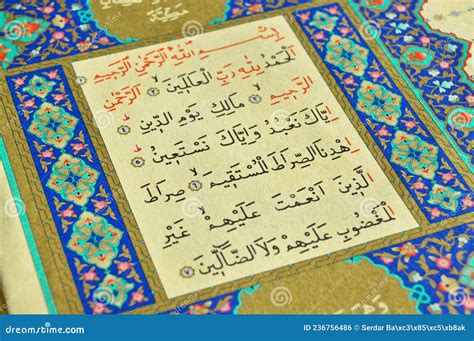 بِسْمِ اللّٰهِ الرَّحْمٰنِ الرَّحِيمِ
اَلْحَمْدُ لِلّٰهِ رَبِّ الْعَالَمِينَ ﴿٢﴾ اَلرَّحْمٰنِ
الرَّحِيمِ ﴿٣﴾ مَالِكِ يَوْمِ الدِّينِ ﴿٤﴾
اِيَّاكَ نَعْبُدُ وَاِيَّاكَ نَسْتَعِينُ ﴿٥﴾
اِهْدِنَا الصِّرَاطَ الْمُسْتَقِيمَ ﴿٦﴾ صِرَاطَ
الَّذِينَ اَنْعَمْتَ عَلَيْهِمْ غَيْرِ
الْمَغْضُوبِ عَلَيْهِمْ وَلَا الضَّالِّينَ ﴿٧﴾
dreamstime.com
ID 236756486 © Serdar Ba\xc3\x85\xc5\xb8ak